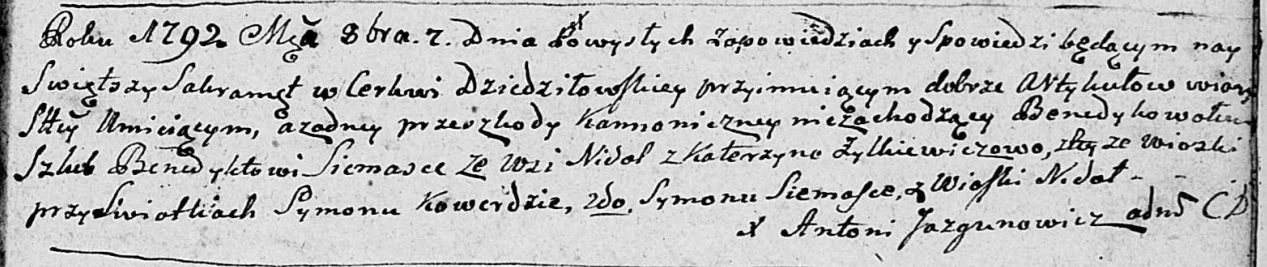 Roku 1792 Mca 8bra. 7. Dnia Po wyszłych zapowiedziach y Spowiedzi będącym nay
Swiętszy Sakramęt w Cerkwi Dziedziłowskiey przyimuiącym dobrze Artykułow wiary
Stey Umieiącym, a zadney przeszkody kannoniczney niezachodzącey Benedykowałem
Szlub Benedyktowi Siemasce ze wsi Nidal z Katerzyno Zylkiewiczowo, sty ze wioski
przy Swiatkach Symonu Kowerdzie, 2do Symonu Siemasce, z Wioski Nidał - -
x Antoni Jazgunowicz adm CD